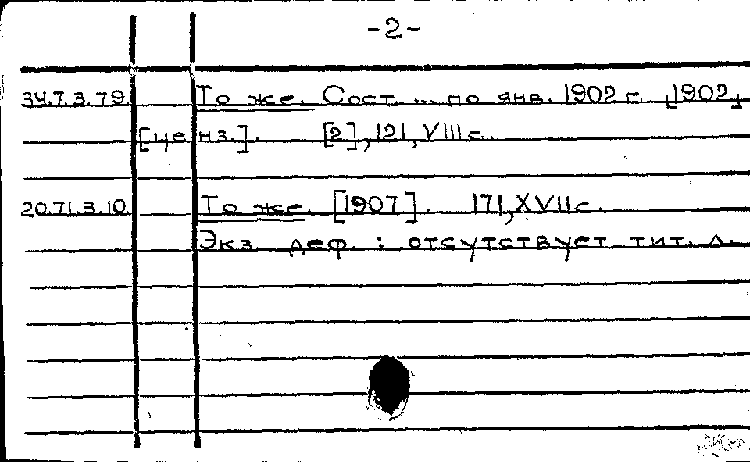 -2-
34.7.3.79 То же. Сост. ... по янв. 1902 г. [1902]
[ценз.]. [2], 121, VIII с.
20.71.3.10 То же. [1907]. 171, XVII с.
Экз. деф.: отсутствует тит. л.